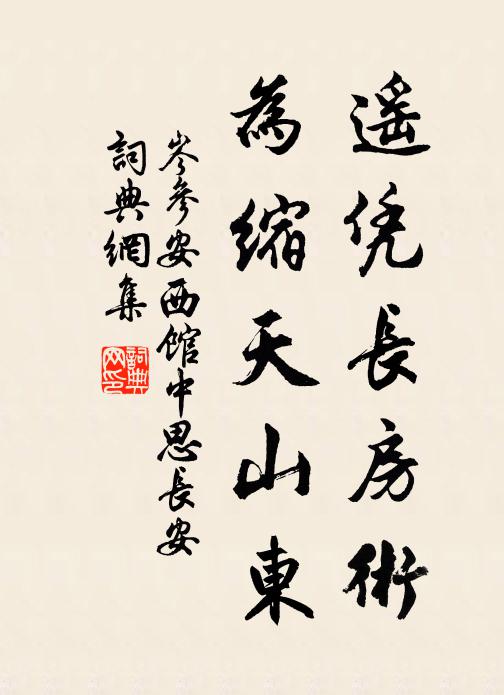 遥凭長房術
為縮天山東
岑參安西館中思長安
詞典網集
詞典
网印